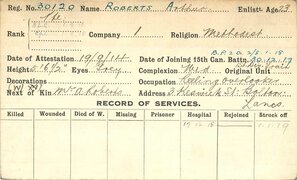 Reg. No. 30120 Name. ROBERTS Arthur Enlistt. Age 23
Rank Pte Company 1 Religion Methodist
B.P.20. 2/5.1.18
Date of Attestation 19/9/14 Date of Joining 15th Can. Battn. 30.12.17
Height 5'6½" Eyes Grey Complexion Med Original Unit
Decorations Occupation
Next of Kin Mrs A Roberts Address 3 Keswick St. Bolton
Lancs.
RECORD OF SERVICES.
Killed Wounded Died of W. Missing Prisoner Hospital Rejoined Struck off
19-12-18 1-1-19